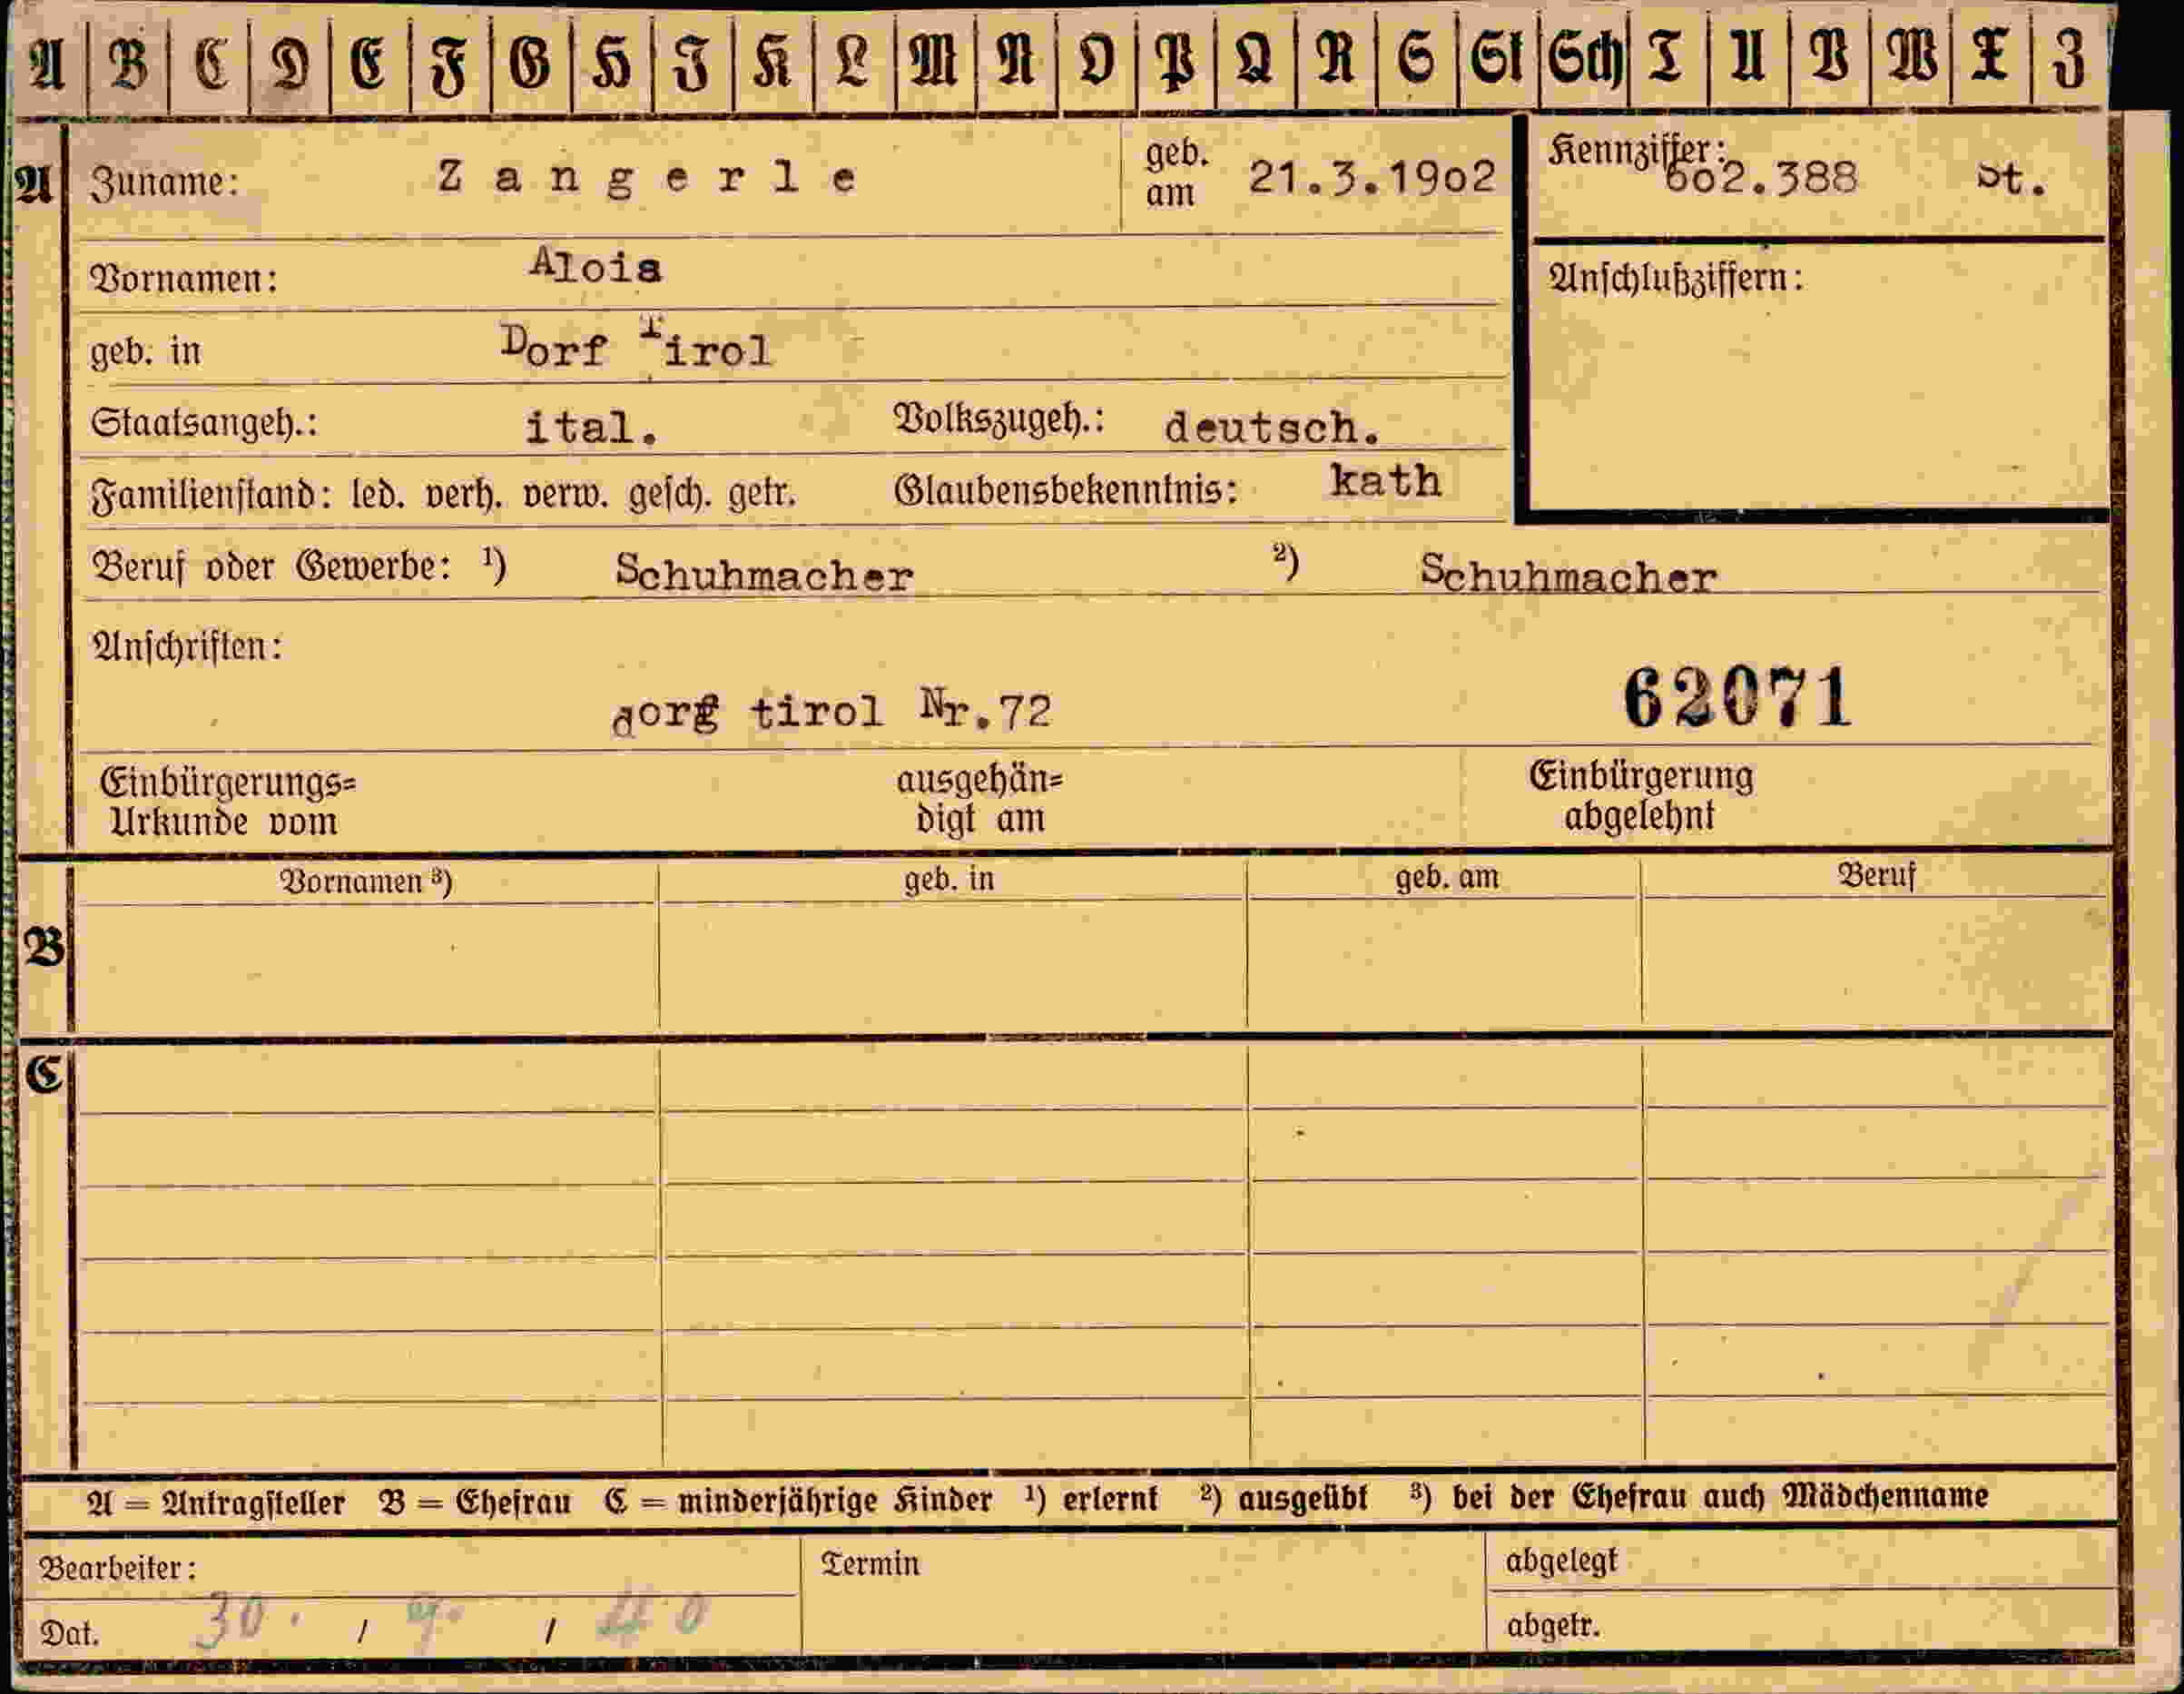 A B C D E F G H I K L M N O P Q R S St Sch T U V W X Z
A Zuname: Zangerle geb. am 21.3.19o2 Kennziffer: 6o2.388 St.
Vornamen: Alois Anschlußziffern:
geb. in Dorf Tirol
Staatsangeh.: ital. Volkszugeh.: deutsch.
Familienstand: led. verh. verw. gesch. getr. Glaubensbekenntnis: kath
Beruf oder Gewerbe: ¹) Schuhmacher ²) Schuhmacher
Anschriften:
dorg tirol Nr.72 62071
Einbürgerungs= ausgehän= Einbürgerung
Urkunde vom digt am abgelehnt
Vornamen ³) geb. in geb. am Beruf
B
C
A = Antragsteller B = Ehefrau C = minderjährige Kinder ¹) erlernt ²) ausgeübt ³) bei der Ehefrau auch Mädchenname
Bearbeiter: Termin abgelegt
Dat. 30. / 9. / 40 abgetr.